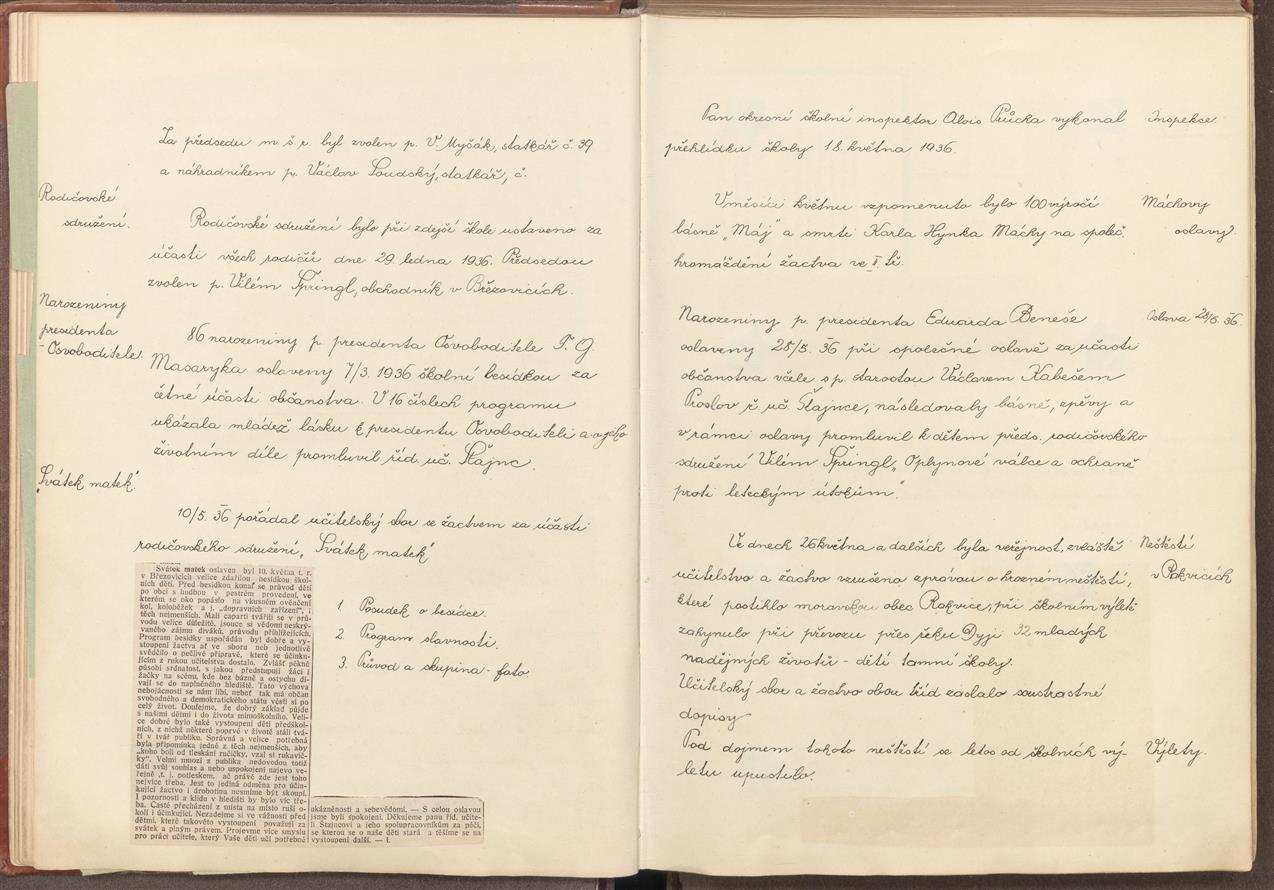 Za předsedu m. š. r. byl zvolen p. V. Myšák, statkář č. 39
a náhradníkem p. Václav Soudský, statkář, č.
Rodičovské
sdružení.
Rodičovské sdružení bylo při zdejší škole ustaveno za
účasti všech rodičů dne 29. ledna 1936. Předsedou
zvolen p. Vilém Špringl, obchodník v Březovicích.
Narozeniny
presidenta
- Osvoboditele.
86 narozeniny p. presidenta Osvoboditele T. G.
Masaryka oslaveny 7/3. 1936 školní besídkou za
četné účasti občanstva. V 16 číslech programu
ukázala mládež lásku k presidentu Osvoboditeli a o jeho
životním díle promluvil říd. uč. Štajnc.
„Svátek matek“.
10/5. 36 pořádal učitelský sbor se žactvem za účasti
rodičovského sdružení „Svátek matek“
Svátek matek oslaven byl 10. května t. r.
v Březovicích velice zdařilou besídkou škol-
ních dětí. Před besídkou konal se průvod dětí
po obci s hudbou v pestrém provedení, ve
kterém se oko popáslo na vkusném ověnčení
kol, koloběžek a j. „dopravních zařízení“, i
těch nejmenších. Malí caparti tvářili se v prů-
vodu velice důležitě, jsouce si vědomi neskrý-
vaného zájmu diváků, průvodu přihlížejících.
Program besídky uspořádán byl dobře a vy-
stoupení žactva ať ve sboru neb jednotlivě
svědčilo o pečlivé přípravě, které se účinku-
jícím z rukou učitelstva dostalo. Zvlášť pěkně
působí srdnatost, s jakou předstupují žáci i
žačky na scénu, kde bez bázně a ostychu dí-
vají se do naplněného hlediště. Tato výchova
nebojácnosti se nám líbí, neboť tak má občan
svobodného a demokratického státu věsti si po
celý život. Doufejme, že dobrý základ půjde
s našimi dětmi i do života mimoškolního. Veli-
ce dobré bylo také vystoupení dětí předškol-
ních, z nichž některé poprvé v životě stáli tvá-
ří v tvář publiku. Správná a velice potřebná
byla připomínka jedné z těch nejmenších, aby
„koho bolí od tleskání ručičky, vzal si rukavič-
ky“. Velmi mnozí z publika nedovedou totiž
dáti svůj souhlas a nebo uspokojení najevo ve-
řejně ,t. j. potleskem, ač právě zde jest toho
nejvíce třeba. Jest to jediná odměna pro účin-
kující žactvo i drobotina nesmíme být skoupí.
I pozornosti a klidu v hledišti by bylo víc tře-
ba. Časté přecházení z místa na místo ruší o-
kolí i účinkující. Nezadejme si ve vážnosti před
dětmi, které takovéto vystoupení považují za
svátek a plným právem. Projevme více smyslu
pro práci učitele, který Vaše děti učí potřebné
ukázněnosti a sebevědomí. — S celou oslavou
jsme byli spokojeni. Děkujeme panu říd. učite-
li Štajncovi a jeho spolupracovníkům za péči,
se kterou se o naše děti stará a těšíme se na
vystoupení další. — l.
1. Posudek o besídce.
2. Program slavnosti.
3. Průvod a skupina - foto.
Pan okresní školní inspektor Alois Průcka vykonal
přehlídku školy 18. května 1936.
Inspekce.
V měsíci květnu vzpomenuto bylo 100 výročí
básně „Máj“ a smrti Karla Hynka Máchy na společ.
hromáždění žactva ve II. tř.
Máchovy
oslavy.
Narozeniny p. presidenta Eduarda Beneše
oslaveny 28/5. 36 při společné oslavě za účasti
občanstva včele s p. starostou Václavem Kabešem
Proslov ř. uč. Štajnce, následovaly básně, zpěvy a
v rámci oslavy promluvil k dětem předs. rodičovského
sdružení Vilém Špringl „O plynové válce a ochraně
proti leteckým útokům.“
Oslava 28/5. 36.
Ve dnech 26 května a dalších byla veřejnost, zvláště
učitelstvo a žactvo vzrušeno zprávou o hrozném neštěstí,
které postihlo moravskou obec Rakvice, při školním výletě
zahynulo při převozu přes řeku Dyji 32 mladých
nadějných životů - dětí tamní školy.
Učitelský sbor a žactvo obou tříd zaslalo soustrastné
dopisy
Neštěstí
v Rakvicích
Pod dojmem tohoto neštěstí se letos od školních vý-
letu upustilo.
Výlety.